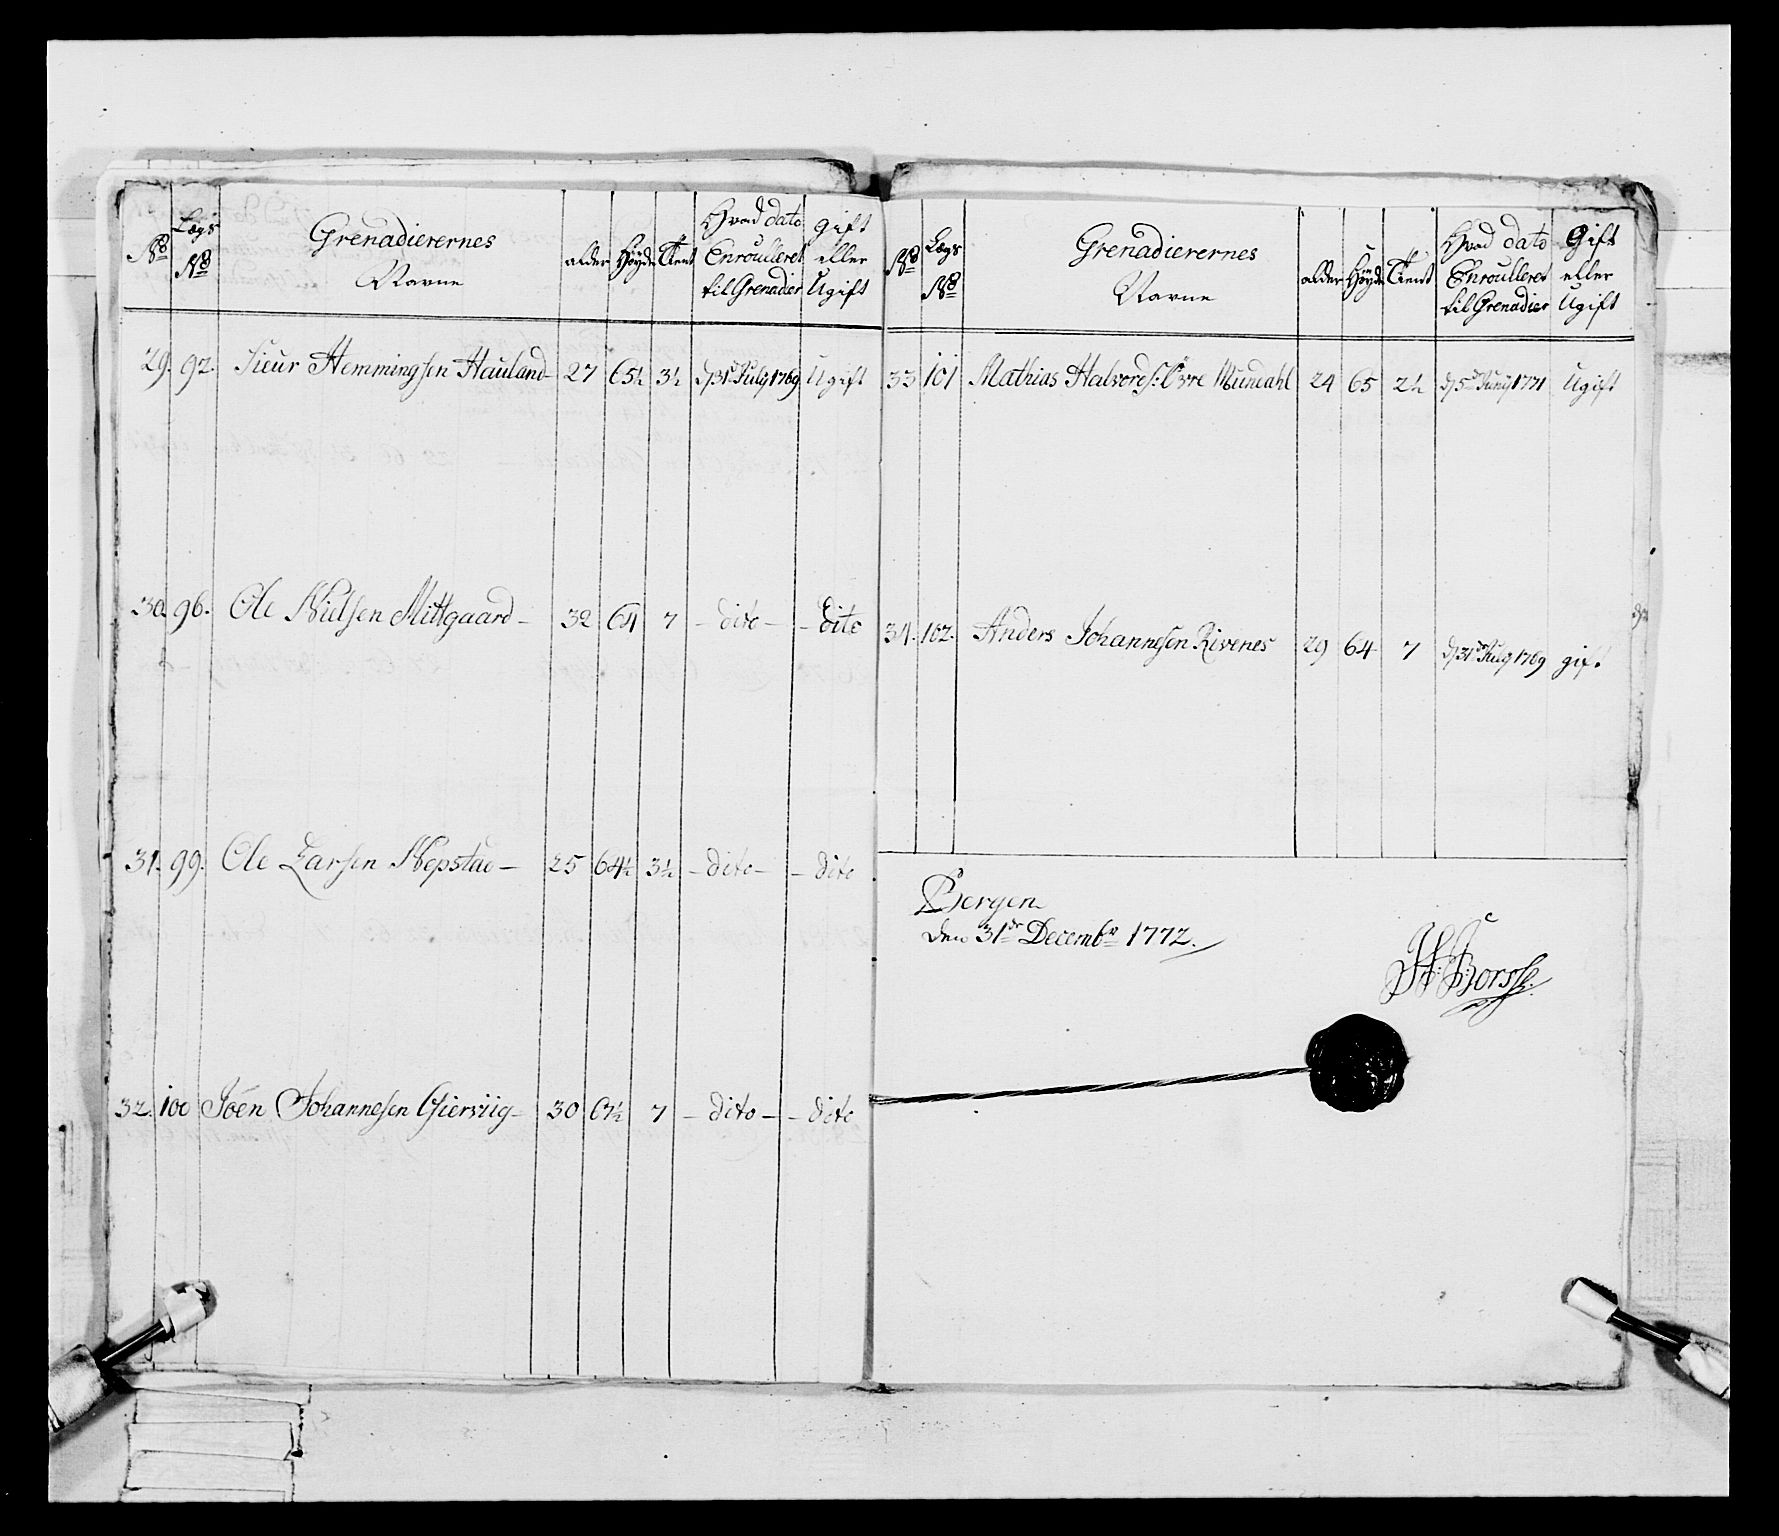 No
Lægs
No
Grenadierernes
Navne
alder
Høyde
Tient
Hvad dato
Enroulleret
til Grenadier
Gift
eller
Ugift
29. 92. Sieur Hemmingsen Hauland 27 65½ 3½ d 31te July 1769 Ugift
30. 96. Ole Nielsen Mittgaard – 32 64 7 – dito – – dito
31. 99. Ole Larsen Nepstad – 25 64½ 3½ – dito – – dito
32. 100 Joen Johannesen Gierviig – 30 67½ 7 – dito – – dito
No
Lægs
No
Grenadierernes
Navne
alder
Høyde
Tient
Hvad dato
Enroulleret
til Grenadier
Gift
eller
Ugift
33 101 Mathias Halvords: Øvre Mundahl 24 65 2½ d 5te Junij 1771 Ugift
34. 102. Anders Johannesen Rivenes 29 64 7 d 31te July 1769 gift
Bergen
den 31de Decembr 1772.